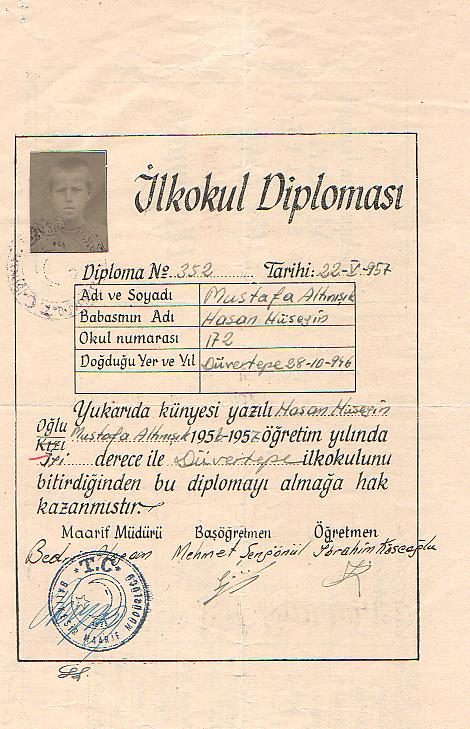 İlkokul Diploması
Diploma Nº 352 Tarihi: 22-V-957
Adı ve Soyadı Mustafa Altınışık
Babasının Adı Hasan Hüseyin
Okul numarası 172
Doğduğu Yer ve Yıl Düvertepe 28-10-946
Yukarıda künyesi yazılı Hasan Hüseyin
Oğlu
Kızı Mustafa Altınışık 1956-1957 öğretim yılında
İyi derece ile Düvertepe ilkokulunu
bitirdiğinden bu diplomayı almağa hak
kazanmıştır.
Maarif Müdürü Başöğretmen Öğretmen
Mehmet Şengönül İbrahim Köseoğlu
T.C.
MAARİF MÜDÜRLÜĞÜ